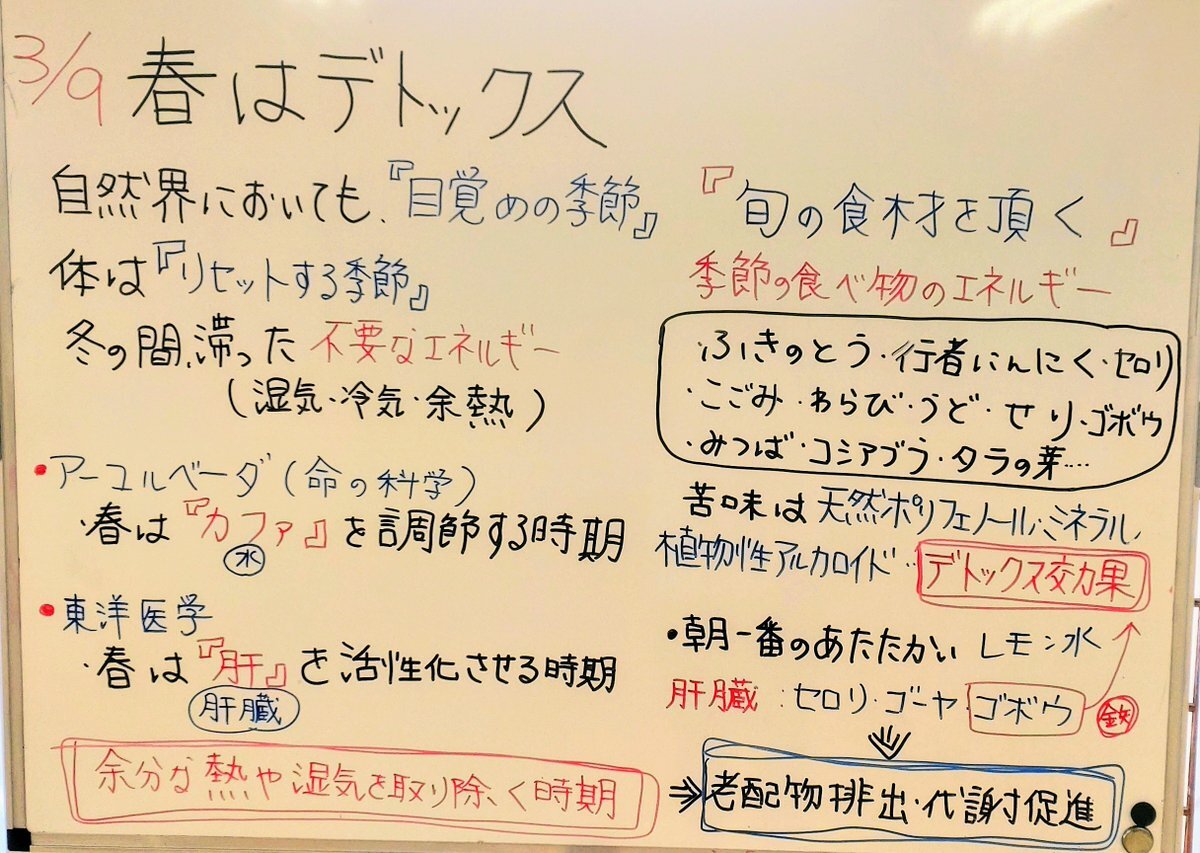 3/9 春はデトックス
自然界においても、『目覚めの季節』
体は『リセットする季節』
冬の間、滞った不要なエネルギー
(湿気・冷気・余熱)
・アーユルベーダ(命の科学)
・春は『カファ』を調節する時期
水
・東洋医学
・春は『肝』を活性化させる時期
肝臓
余分な熱や湿気を取り除く時期
『旬の食材を頂く』
季節の食べ物のエネルギー
・ふきのとう・行者にんにく・セロリ
・こごみ・わらび・うど・せり・ゴボウ
・みつば・コシアブラ・タラの芽…
苦味は天然ポリフェノール、ミネラル、
植物性アルカロイド…デトックス効果
・朝一番のあたたかい レモン水
肝臓:セロリ・ゴーヤ・ゴボウ 鉄
⇒老配物排出・代謝促進